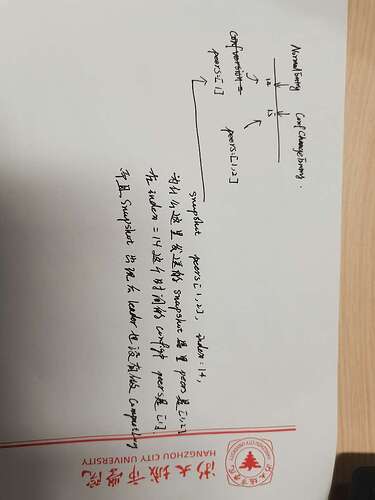 NormalEntry ConfChangeEntry.
14 15
confversion=
peers:[1] peers:[1,2]
snapshot peers[1,2], index:14,
为什么这里发送的 snapshot 里 peers 是 [1,2]
在 index=14 这个时间的 config peers 是 [1]
并且 Snapshot 出现后 leader 也没有做
浙大城市学院
HANGZHOU CITY UNIVERSITY